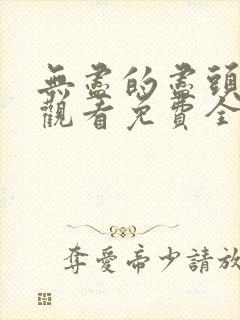 無盡的盡頭
觀看免費全
奪愛帝少請放